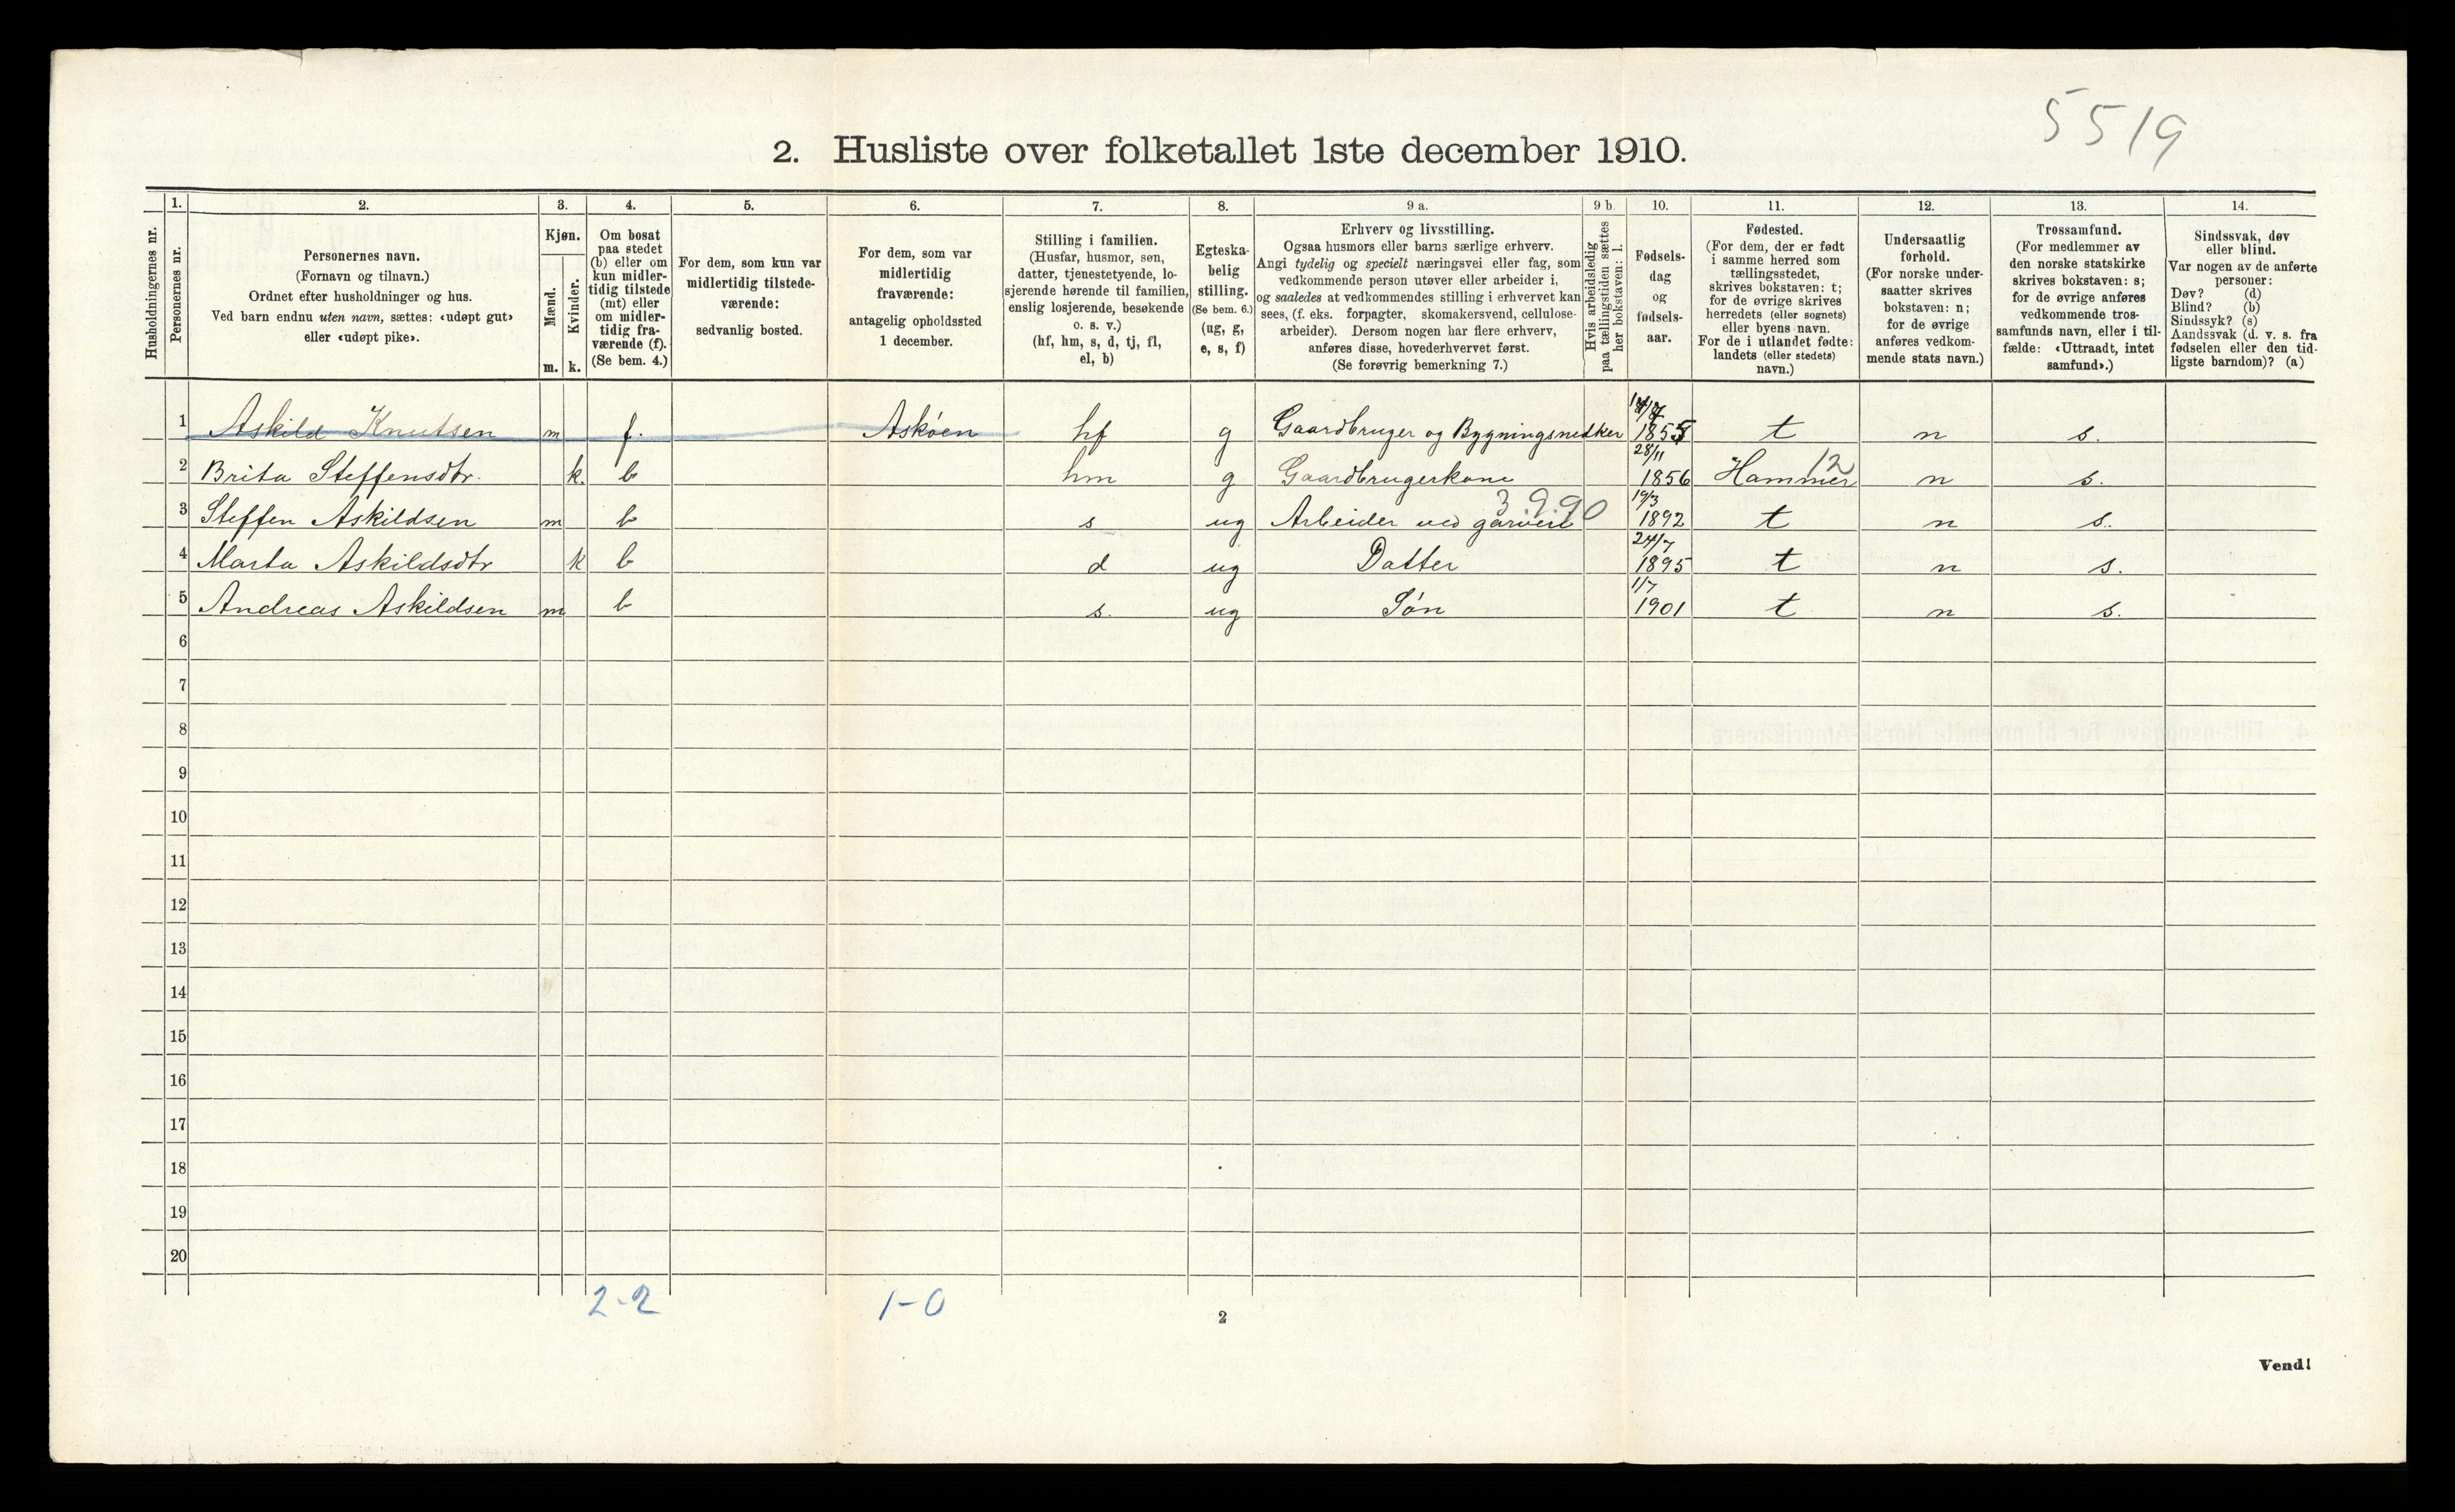 5519
2. Husliste over folketallet 1ste december 1910.
Husholdningernes nr.
1.
Personernes nr.
2.
Personernes navn.
(Fornavn og tilnavn.)
Ordnet efter husholdninger og hus.
Ved barn endnu uten navn, sættes: «udøpt gut»
eller «udøpt pike».
3.
Kjøn.
Mænd.
Kvinder.
m. k.
4.
Om bosat
paa stedet
(b) eller om
kun midler-
tidig tilstede
(mt) eller
om midler-
tidig fra-
værende (f).
(Se bem. 4.)
5.
For dem, som kun var
midlertidig tilstede-
værende:
sedvanlig bosted.
6.
For dem, som var
midlertidig
fraværende:
antagelig opholdssted
1 december.
7.
Stilling i familien.
(Husfar, husmor, søn,
datter, tjenestetyende, lo-
sjerende hørende til familien,
enslig losjerende, besøkende
o. s. v.)
(hf, hm, s, d, tj, fl,
el, b)
8.
Egteska-
belig
stilling.
(Se bem. 6.)
(ug, g,
e, s, f)
9 a.
Erhverv og livsstilling.
Ogsaa husmors eller barns særlige erhverv.
Angi tydelig og specielt næringsvei eller fag, som
vedkommende person utøver eller arbeider i,
og saaledes at vedkommendes stilling i erhvervet kan
sees, (f. eks. forpagter, skomakersvend, cellulose-
arbeider). Dersom nogen har flere erhverv,
anføres disse, hovederhvervet først.
(Se forøvrig bemerkning 7.)
9 b.
Hvis arbeidsledig
paa tællingstiden sættes
her bokstaven: l.
10.
Fødsels-
dag
og
fødsels-
aar.
11.
Fødested.
(For dem, der er født
i samme herred som
tællingsstedet,
skrives bokstaven: t;
for de øvrige skrives
herredets (eller sognets)
eller byens navn.
For de i utlandet fødte:
landets (eller stedets)
navn.)
12.
Undersaatlig
forhold.
(For norske under-
saatter skrives
bokstaven: n;
for de øvrige
anføres vedkom-
mende stats navn.)
13.
Trossamfund.
(For medlemmer av
den norske statskirke
skrives bokstaven: s;
for de øvrige anføres
vedkommende tros-
samfunds navn, eller i til-
fælde: «Uttraadt, intet
samfund».)
14.
Sindssvak, døv
eller blind.
Var nogen av de anførte
personer:
Døv? (d)
Blind? (b)
Sindssyk? (s)
Aandssvak (d. v. s. fra
fødselen eller den tid-
ligste barndom)? (a)
1 Askild Knutsen m f. Askøen hf g Gaardbruger og Bygningsnedker 1855 t n s.
2 Brita Steffensdtr. k. b hm g Gaardbrugerkone 28/11 1856 Hammer 12 n s.
3 Steffen Askildsen m b s ug Arbeider ved garveri 3.9.90 19/3 1892 t n s.
4 Marta Askildsdtr k b d ug Datter 24/7 1895 t n s.
5 Andreas Askildsen m b s. ug Søn 1/7 1901 t n s.
6
7
8
9
10
11
12
13
14
15
16
17
18
19
20
2-2 1-0
2
Vend!